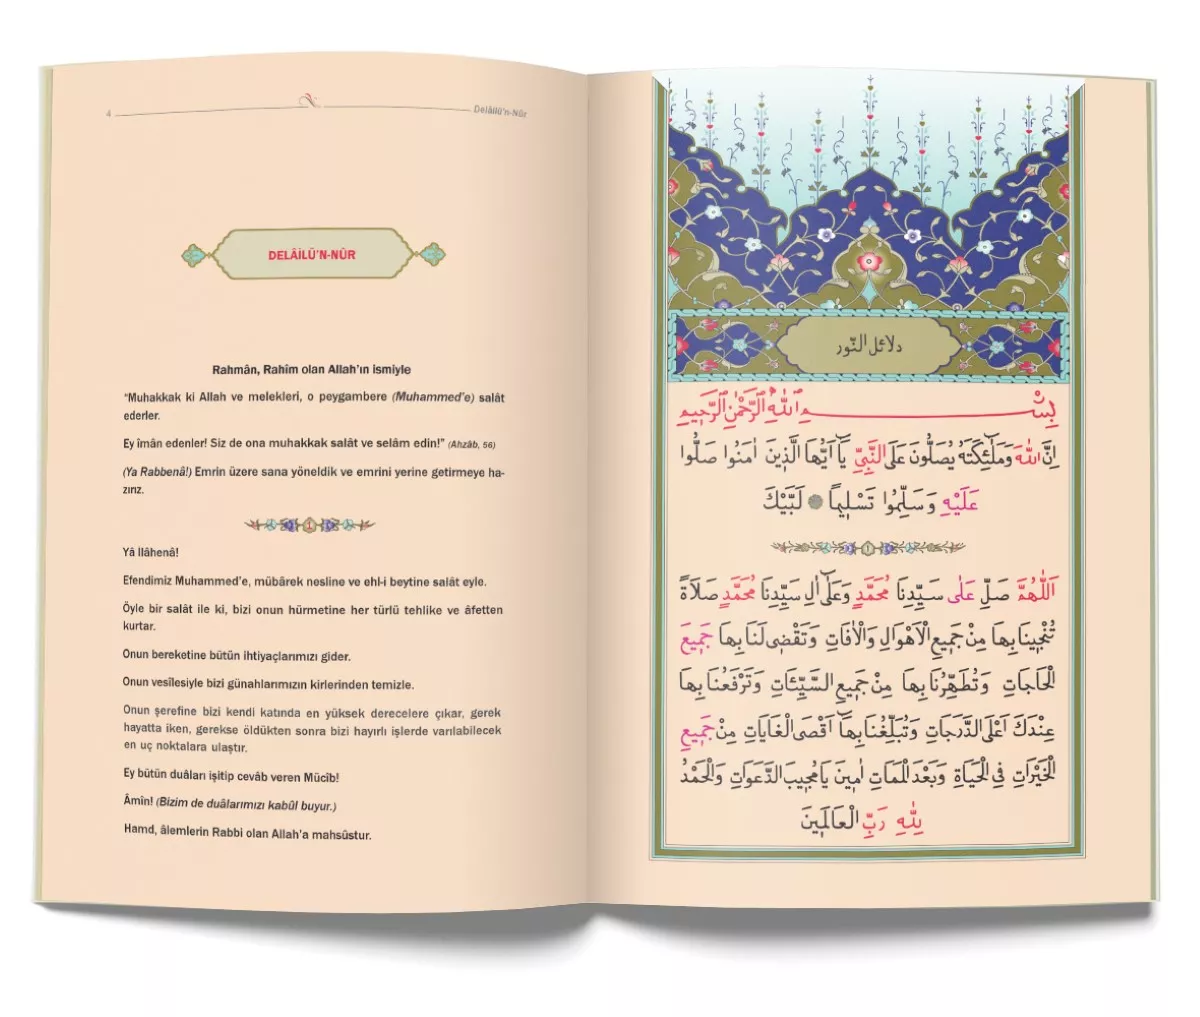 4
Delâilü'n-Nûr
DELÂİLÜ'N-NÛR
Rahmân, Rahîm olan Allah'ın ismiyle
"Muhakkak ki Allah ve melekleri, o peygambere (Muhammed'e) salât
ederler.
Ey îmân edenler! Siz de ona muhakkak salât ve selâm edin!" (Ahzâb, 56)
(Ya Rabbenâ!) Emrin üzere sana yöneldik ve emrini yerine getirmeye ha-
zırız.
Yâ ilâhenâ!
Efendimiz Muhammed'e, mübârek nesline ve ehl-i beytine salât eyle.
Öyle bir salât ile ki, bizi onun hürmetine her türlü tehlike ve âfetten
kurtar.
Onun bereketine bütün ihtiyaçlarımızı gider.
Onun vesîlesiyle bizi günahlarımızın kirlerinden temizle.
Onun şerefine bizi kendi katında en yüksek derecelere çıkar, gerek
hayatta iken, gerekse öldükten sonra bizi hayırlı işlerde varılabilecek
en uç noktalara ulaştır.
Ey bütün duâları işitip cevâb veren Mücîb!
Âmîn! (Bizim de duâlarımızı kabûl buyur.)
Hamd, âlemlerin Rabbi olan Allah'a mahsûstur.
دلائل النّور
بِسْــــــــمِ اللّٰهِ الرَّحْمٰنِ الرَّحٖيمِ
اِنَّ اللّٰهَ وَمَلٰٓئِكَتَهُ يُصَلُّونَ عَلَى النَّبِىِّ يَٓا اَيُّهَا الَّذٖينَ اٰمَنُوا صَلُّوا
عَلَيْهِ وَسَلِّمُوا تَسْلٖيمًا ۞ لَبَّيْكَ
اَللّٰهُمَّ صَلِّ عَلٰى سَيِّدِنَا مُحَمَّدٍ وَعَلٰٓى اٰلِ سَيِّدِنَا مُحَمَّدٍ صَلَاةً
تُنْجٖينَا بِهَا مِنْ جَمٖيعِ الْاَهْوَالِ وَالْاٰفَاتِ وَتَقْضٖى لَنَا بِهَا جَمٖيعَ
الْحَاجَاتِ وَتُطَهِّرُنَا بِهَا مِنْ جَمٖيعِ السَّيِّئَاتِ وَتَرْفَعُنَا بِهَا
عِنْدَكَ اَعْلَى الدَّرَجَاتِ وَتُبَلِّغُنَا بِهَٓا اَقْصَى الْغَايَاتِ مِنْ جَمٖيعِ
الْخَيْرَاتِ فِى الْحَيَاةِ وَبَعْدَ الْمَمَاتِ اٰمٖينَ يَا مُجٖيبَ الدَّعَوَاتِ وَالْحَمْدُ
لِلّٰهِ رَبِّ الْعَالَمٖينَ